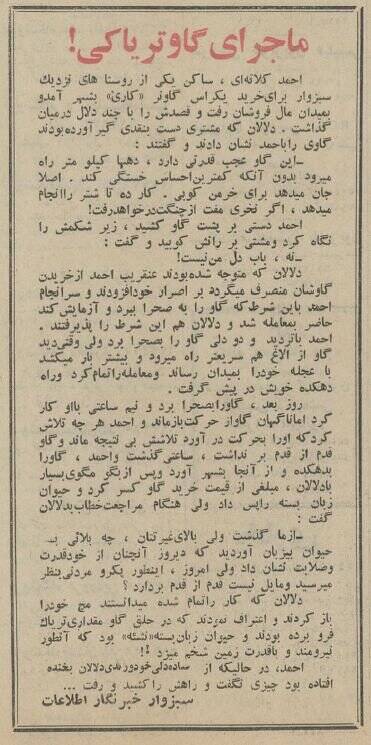 ماجرای گاو تریاکی!
احمد کلاته‌ای ، ساکن یکی از روستا های نزدیک
سبزوار برای خرید یکراس گاونر «کاری» بشهر آمدو
بمیدان مال فروشان رفت و قصدش را با چند دلال درمیان
گذاشت . دلالان که مشتری دست بنقدی گیر آورده بودند
گاوی را باحمد نشان دادند و گفتند :
ـ این گاو عجب قدرتی دارد ، دهها کیلو متر راه
میرود بدون آنکه کمترین احساس خستگی کند . اصلا
جان میدهد برای خرمن کوبی . کار ده تا شتر را انجام
میدهد ، اگر نخری مفت از چنگت در خواهد رفت!
احمد دستی بر پشت گاو کشید ، زیر شکمش را
نگاه کرد و مشتی بر رانش کوبید و گفت :
ـ نه ، باب دل من نیست!
دلالان که متوجه شده بودند عنقریب احمد از خریدن
گاوشان منصرف میگردد بر اصرار خود افزودند و سرانجام
احمد باین شرط که گاو را به صحرا ببرد و آزمایش کند
حاضر بمعامله شد و دلالان هم این شرط را پذیرفتند .
احمد باتردید و دو دلی گاو را بصحرا برد ولی وقتی دید
گاو از الاغ هم سریعتر راه میرود و بیشتر بار میکشد
با عجله خودرا بمیدان رساند ومعامله را تمام کرد و راه
دهکده خویش در پیش گرفت .
روز بعد ، گاو را بصحرا برد و نیم ساعتی با او کار
کرد اما ناگهان گاو از حرکت بازماند و احمد هر چه تلاش
کرد که اورا بحرکت در آورد تلاشش بی نتیجه ماند و گاو
قدم از قدم بر نداشت ، ساعتی گذشت و احمد ، گاورا
بدهکده و از آنجا بشهر آورد وپس از بگو مگوی بسیار
بادلالان ، مبلغی از قیمت خرید گاو کسر کرد و حیوان
زبان بسته را پس داد ولی هنگام مراجعت خطاب بدلالان
گفت :
ـ از ما گذشت ولی بالای غیرتتان ، چه بلائی بـ
حیوان بیزبان آوردید که دیروز آنچنان از خود قدرت
وصلابت نشان داد ولی امروز ، اینطور پکر و مردنی بنظر
میرسید و مایل نیست قدم از قدم بردارد ؟
دلالان که کار را تمام شده میدانستند مچ خودرا
باز کردند و اعتراف نمودند که در حلق گاو مقداری تریاک
فرو برده بودند و حیوان زبان بسته «نشئه» بود که آنطور
نیرومند و باقدرت زمین شخم میزد !!
احمد، در حالیکه از ساده دلی خود و رندی دلالان بخنده
افتاده بود چیزی نگفت و راهش را کشید و رفت ...
سبزوار خبرنگار اطلاعات